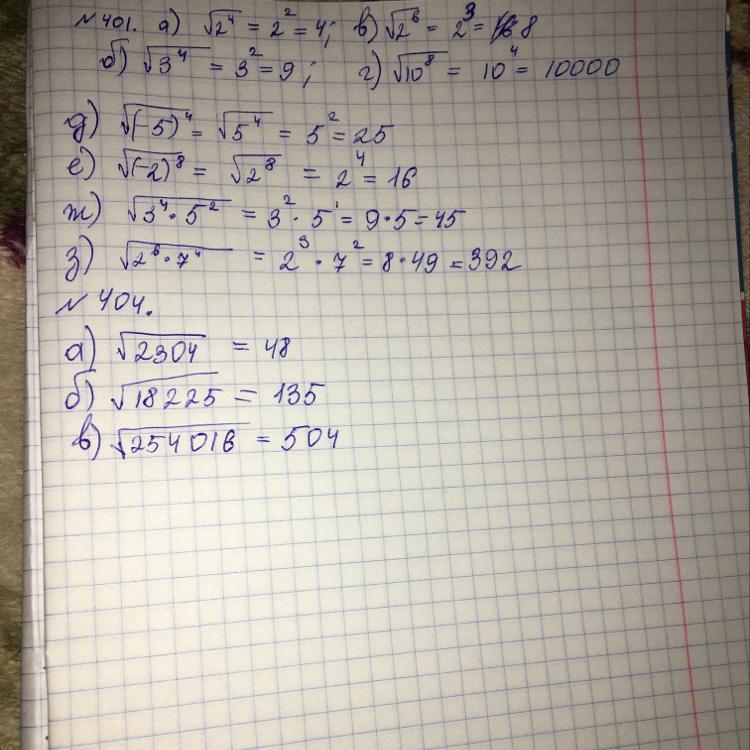 № 401. а) √2⁴ = 2² = 4; в) √2⁶ = 2³ = 8
б) √3⁴ = 3² = 9; г) √10⁸ = 10⁴ = 10000
д) √(-5)⁴ = √5⁴ = 5² = 25
е) √(-2)⁸ = √2⁸ = 2⁴ = 16
ж) √3⁴·5² = 3²·5¹ = 9·5 = 45
з) √2⁶·7⁴ = 2³·7² = 8·49 = 392
№ 404.
а) √2304 = 48
б) √18225 = 135
в) √254016 = 504